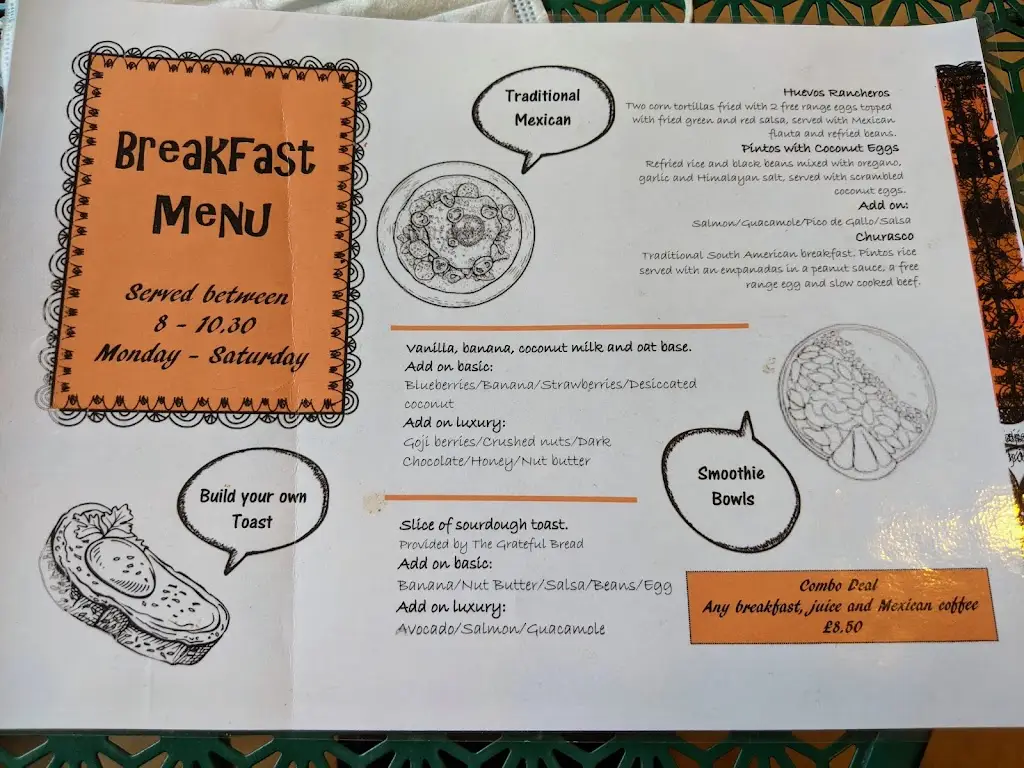 Breakfast
Menu
Served between
8 - 10.30
Monday - Saturday
Traditional
Mexican
Huevos Rancheros
Two corn tortillas fried with 2 free range eggs topped
with fried green and red salsa, served with Mexican
flauta and refried beans.
Pintos with Coconut Eggs
Refried rice and black beans mixed with oregano,
garlic and Himalayan salt, served with scrambled
coconut eggs.
Add on:
Salmon/Guacamole/Pico de Gallo/Salsa
Churasco
Traditional South American breakfast. Pintos rice
served with an empanadas in a peanut sauce, a free
range egg and slow cooked beef.
Vanilla, banana, coconut milk and oat base.
Add on basic:
Blueberries/Banana/Strawberries/Desiccated
coconut
Add on luxury:
Goji berries/Crushed nuts/Dark
Chocolate/Honey/Nut butter
Smoothie
Bowls
Build your own
Toast
Slice of sourdough toast.
Provided by The Grateful Bread
Add on basic:
Banana/Nut Butter/Salsa/Beans/Egg
Add on luxury:
Avocado/Salmon/Guacamole
Combo Deal
Any breakfast, juice and Mexican coffee
£8.50